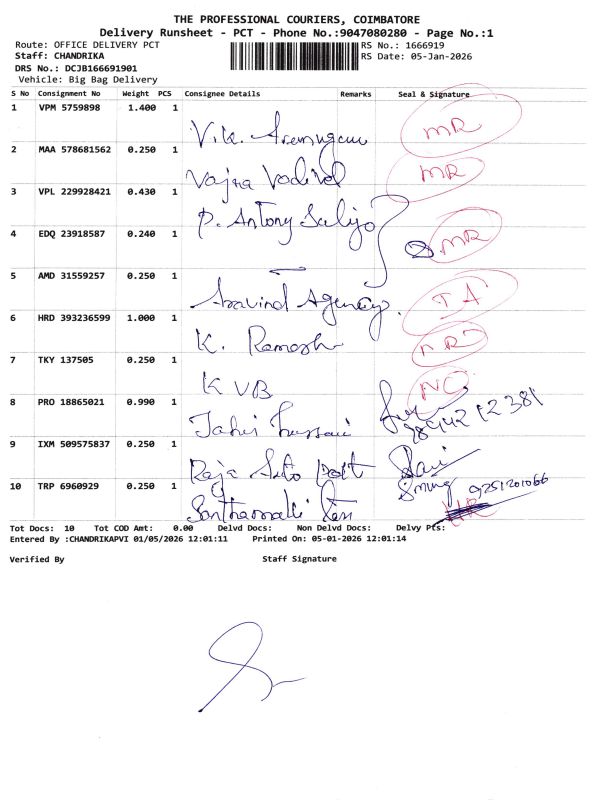 THE PROFESSIONAL COURIERS, COIMBATORE
Delivery Runsheet - PCT - Phone No.:9047080280 - Page No.:1
Route: OFFICE DELIVERY PCT RS No.: 1666919
Staff: CHANDRIKA RS Date: 05-Jan-2026
DRS No.: DCJB166691901
Vehicle: Big Bag Delivery
S No Consignment No Weight PCS Consignee Details Remarks Seal & Signature
1 VPM 5759898 1.400 1
MR
2 MAA 578681562 0.250 1
Vajra Vadivel MR
3 VPL 229928421 0.430 1
P. Antony
4 EDQ 23918587 0.240 1
MR
5 AMD 31559257 0.250 1
Aravind Agency. IA
6 HRD 393236599 1.000 1
K. Ramesh NR
7 TKY 137505 0.250 1
K VB NC
8 PRO 18865021 0.990 1
98942 12381
9 IXM 509575837 0.250 1
Raja Auto
10 TRP 6960929 0.250 1
9251201066
Tot Docs: 10 Tot COD Amt: 0.00 Delvd Docs: Non Delvd Docs: Delvy Pts:
Entered By :CHANDRIKAPVI 01/05/2026 12:01:11 Printed On: 05-01-2026 12:01:14
Verified By Staff Signature